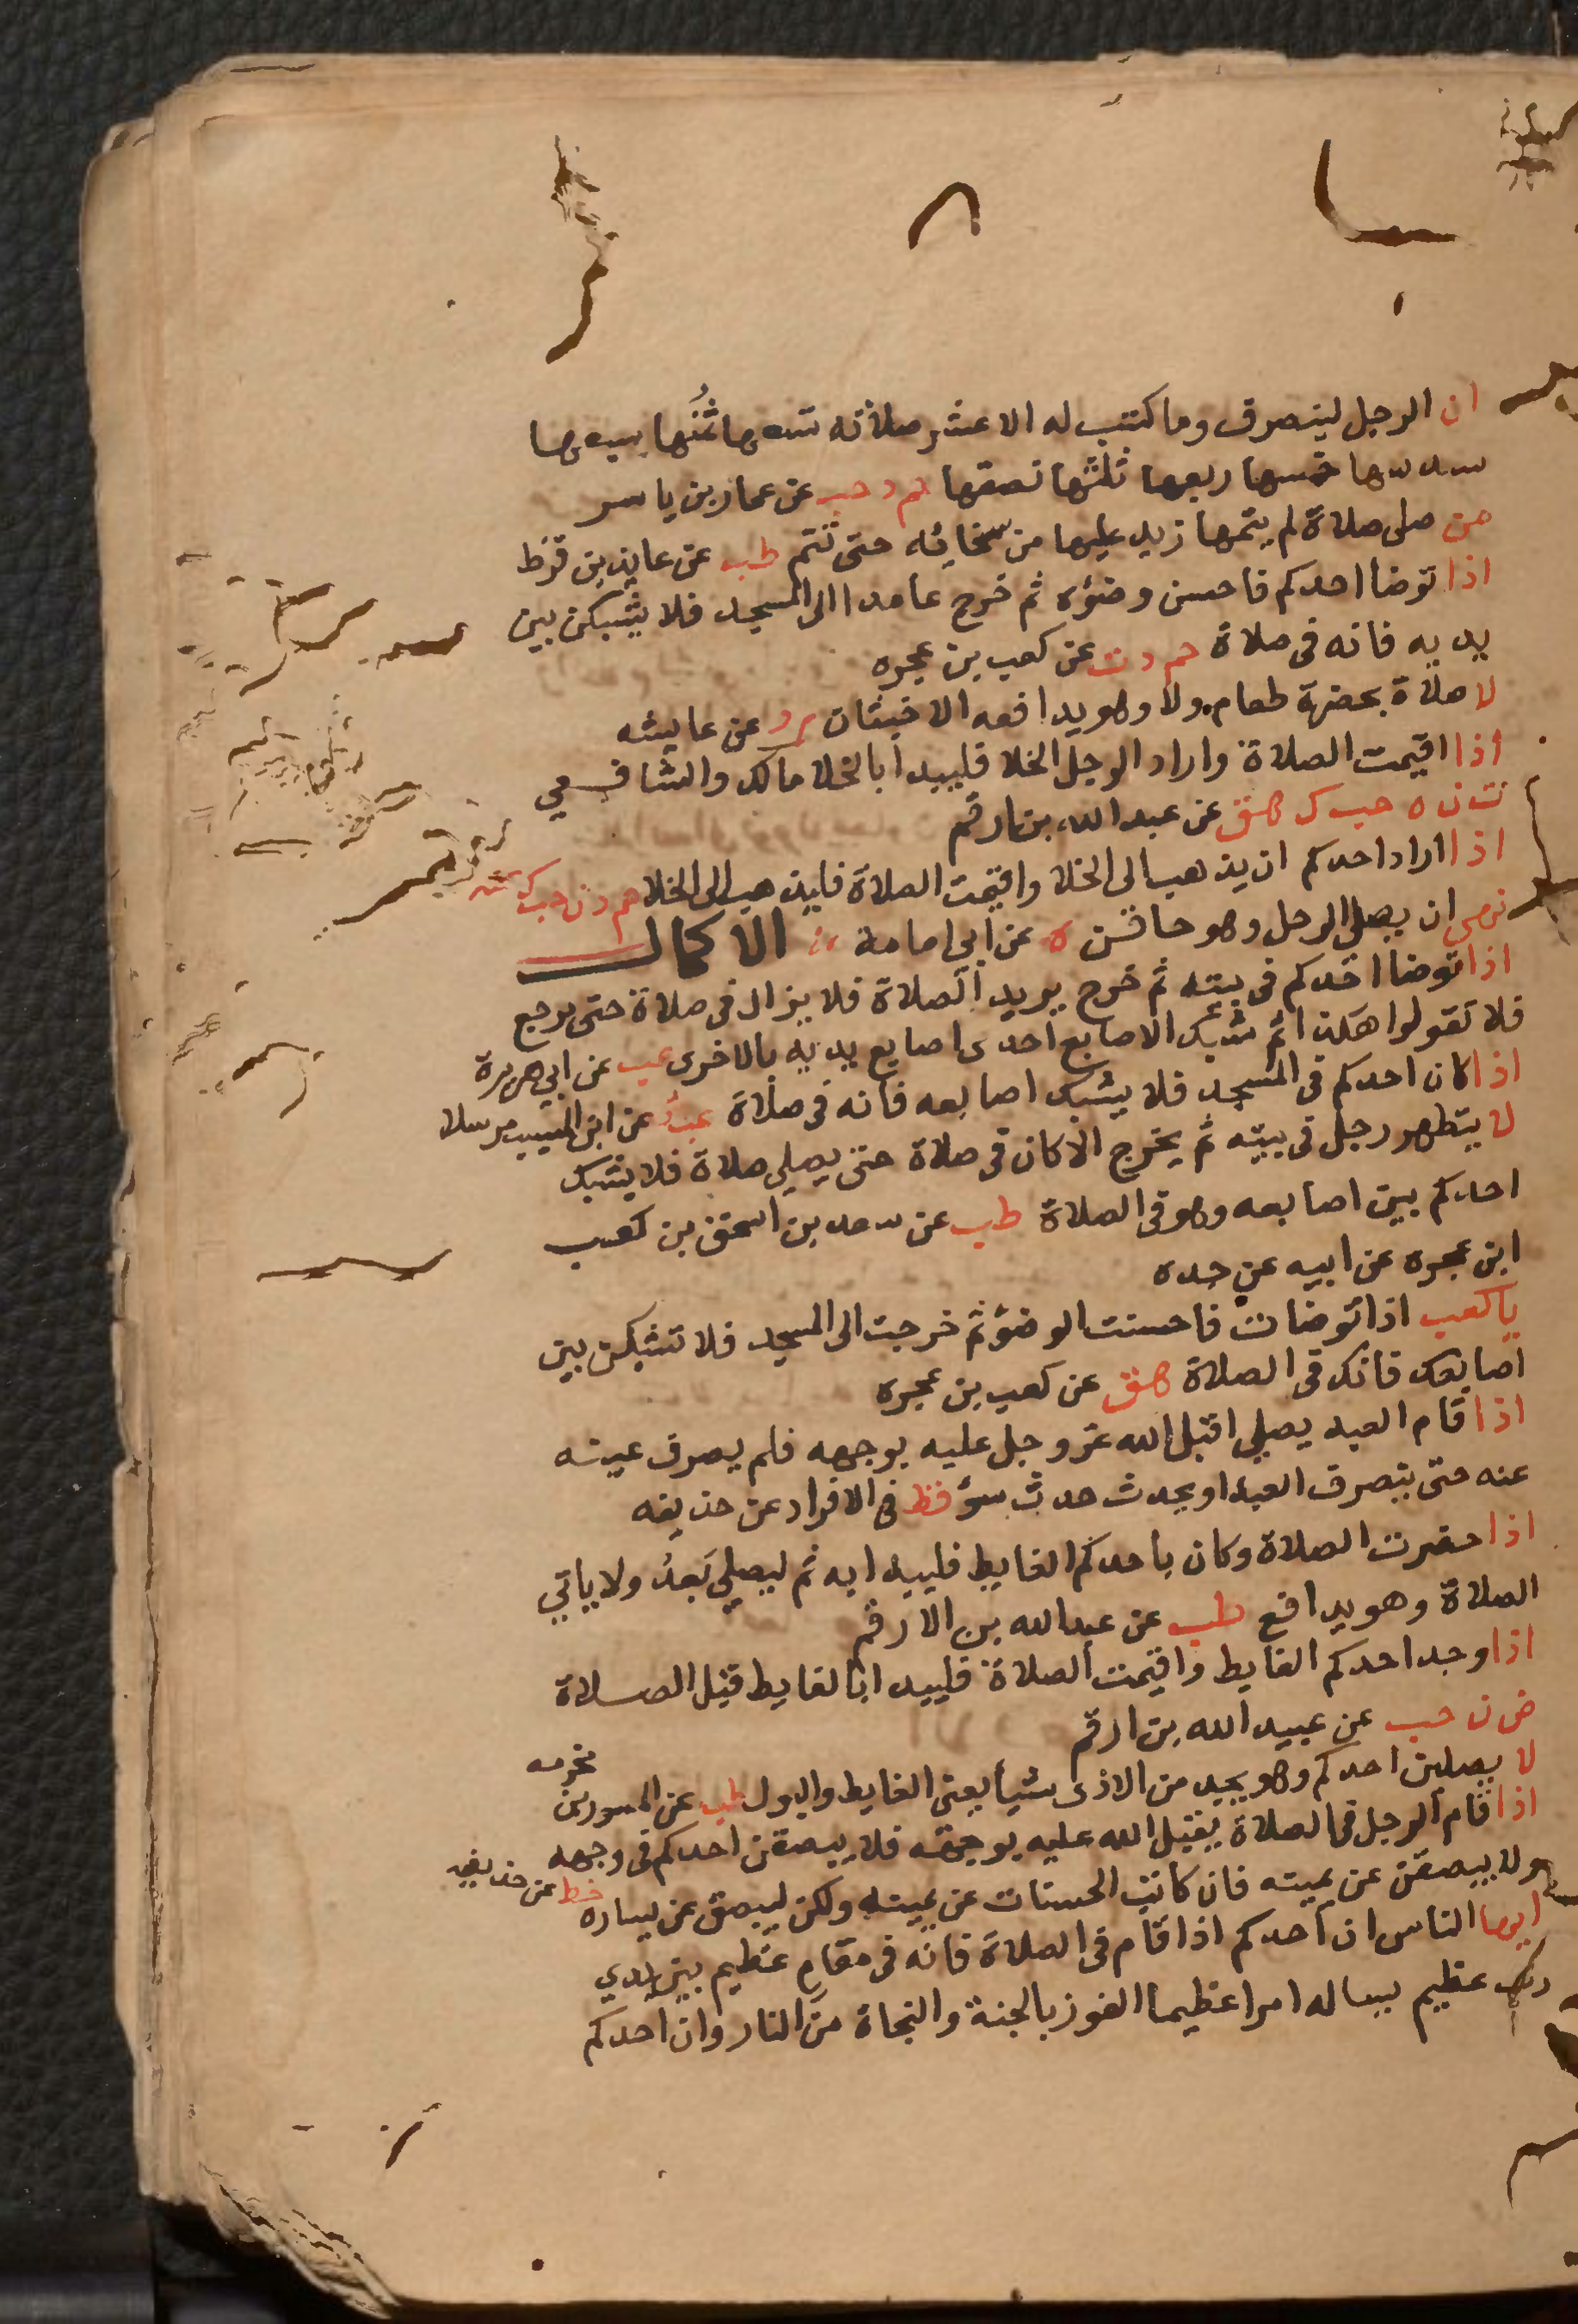 ان الرجل لينصرف وما كتب له الا عشر صلاته تسعها ثُمُنها سبعها
سدسها خمسها ربعها ثلثها نصفها حم د حب عن عمار بن ياسر
من صلى صلاة لم يتمها زيد عليها من سبحاته حتى تتم طب عن عايذ بن قرط
اذا توضا احدكم فاحسن وضؤه ثم خرج عامدا الى المسجد فلا يشبكن بين
يديه فانه فى صلاة حم د ت عن كعب بن عجره
لا صلاة بحضرة طعام ولا وهو يدافعه الاخبثان م د عن عايشه
اذا اقيمت الصلاة واراد الرجل الخلا فليبدا بالخلا مالك والشافعي
ت ن ه حب ك هق عن عبد الله بن ارقم
اذا اراد احدكم ان يذهب الى الخلا واقيمت الصلاة فليذهب الى الخلا حم د ن حب ك عنه
نهى ان يصلى الرجل وهو حاقن ه عن ابي امامة الاكمال
اذا توضا احدكم فى بيته ثم خرج يريد الصلاة فلا يزال فى صلاة حتى يرجع
فلا تقولوا هكذا ثم شبك الاصابع احدى اصابع يديه بالاخرى عب عن ابي هريرة
اذا كان احدكم فى المسجد فلا يشبك اصابعه فانه فى صلاة عب عن ابن المسيب مرسلا
لا يتطهر رجل فى بيته ثم يخرج الا كان فى صلاة حتى يصلي صلاة فلا يشبك
احدكم بين اصابعه وهو فى الصلاة طب عن سعد بن اسحق بن كعب
ابن عجره عن ابيه عن جده
يا كعب اذا توضات فاحسنت الوضؤ ثم خرجت الى المسجد فلا تشبكن بين
اصابعك فانك فى الصلاة هق عن كعب بن عجره
اذا قام العبد يصلي اقبل الله عز وجل عليه بوجهه فلم يصرف عينه
عنه حتى ينصرف العبد او يحدث حدث سؤ قط في الافراد عن حذيفه
اذا حضرت الصلاة وكان باحدكم الغايط فليبدا به ثم ليصلي بَعدُ ولا ياتي
الصلاة وهو يدافع طب عن عبد الله بن الارقم
اذا وجد احدكم الغايط واقيمت الصلاة فليبدا بالغايط قبل الصلاة
ض ن حب عن عبيد الله بن ارقم
لا يصلين احدكم وهو يجد من الاذى شيأ يعنى الغايط والبول طب عن المسور بن مخرمه
اذا قام الرجل فى الصلاة يقبل الله عليه بوجهه فلا يبصقن احدكم فى وجهه
ولا يبصقن عن يمينه فان كاتب الحسنات عن يمينه ولكن ليبصق عن يساره خط عن حذيفه
ايها الناس ان احدكم اذا قام فى الصلاة فانه فى مقام عظيم بين يدي
رب عظيم يساله امرا عظيما الفوز بالجنة والنجاة من النار وان احدكم